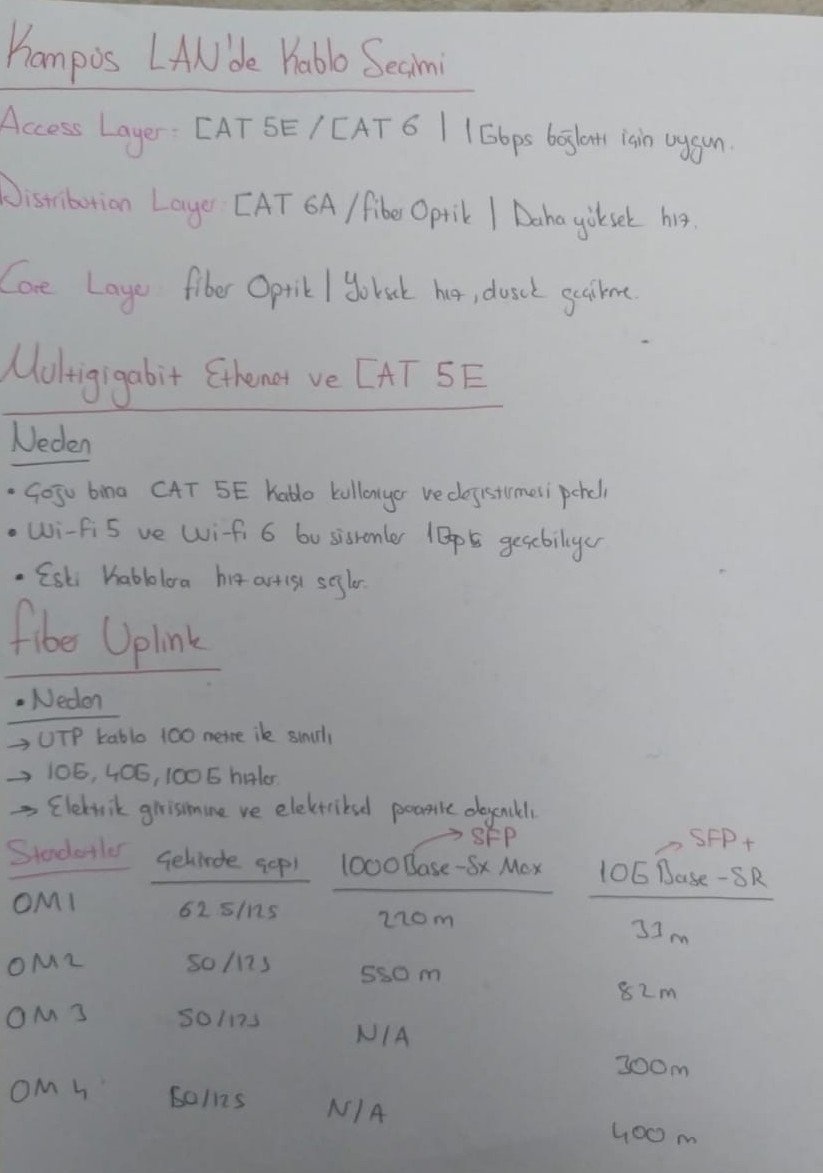 Kampüs LAN'de Kablo Seçimi
Access Layer: CAT 5E / CAT 6 | 1Gbps bağlantı için uygun.
Distribution Layer CAT 6A / fiber Optik | Daha yüksek hız.
Core Layer fiber Optik | Yüksek hız, dusuk gecikme.
Multigigabit Ethernet ve CAT 5E
Neden
• Çoğu bina CAT 5E Kablo kullanıyor ve değiştirmesi pahalı
• Wi-Fi 5 ve Wi-fi 6 bu sistemler 1Gpbs geçebiliyor
• Eski Kablolara hız artışı sağlar.
fiber Uplink
• Neden
→ UTP kablo 100 metre ile sınırlı
→ 10G, 40G, 100G hızlar
→ Elektrik girisimine ve elektriksel parazite dayanıklı.
→ SFP → SFP+
Standartlar Çekirde çapı 1000Base-Sx Max 10G Base-SR
OM1 62 5/125 220m 33m
OM2 50/125 550m 82m
OM3 50/125 N/A 300m
OM4 50/125 N/A 400m